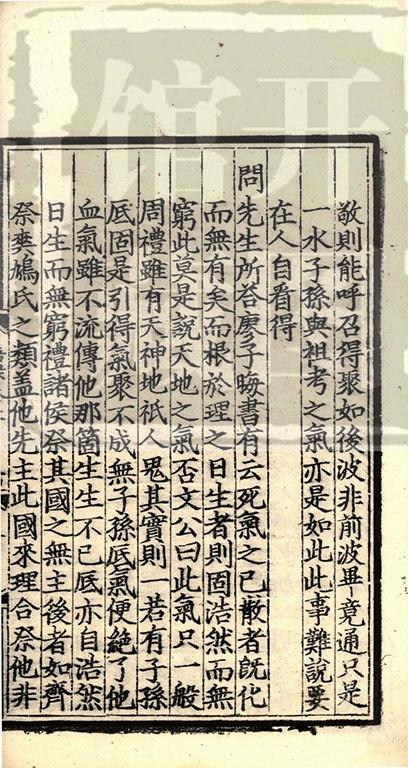 敬則能呼召得聚如後波非前波畢竟通只是
一水子孫與祖考之氣亦是如此此事難說要
在人自看得
問先生所荅廖子晦書有云死氣之已散者旣化
而無有矣而根於理之日生者則固浩然而無
窮此莫是說天地之氣否文公曰此氣只一般
周禮雖有天神地祇人鬼其實則一若有子孫
底固是引得氣聚不成無子孫底氣便絕了他
血氣雖不流傳他那箇生生不已底亦自浩然
日生而無窮禮諸侯祭其國之無主後者如齊
祭爽鳩氏之類盖他先主此國來理合祭他非